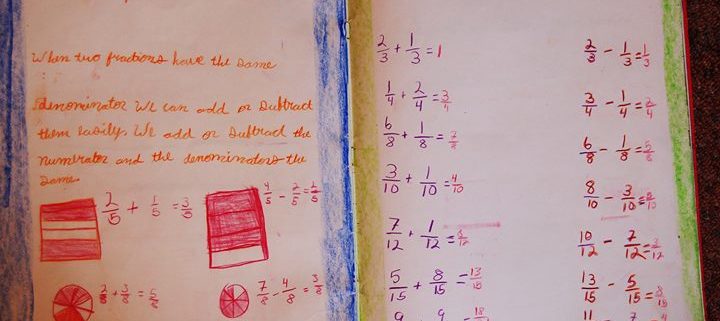 When two fractions have the same
denominator We can add or Subtract
them easily. We add or Subtract the
numerator and the denominators the
Same
2/5 + 1/5 = 3/5
4/5 - 2/5 = 2/5
2/8 + 3/8 = 5/8
7/8 - 4/8 = 3/8
2/3 + 1/3 = 1
1/4 + 2/4 = 3/4
6/8 + 1/8 = 7/8
3/10 + 1/10 = 4/10
7/12 + 1/12 = 8/12
5/15 + 8/15 = 13/15
2/3 - 1/3 = 1/3
3/4 - 1/4 = 2/4
6/8 - 1/8 = 5/8
8/10 - 3/10 = 5/10
10/12 - 7/12 = 3/12
13/15 - 5/15 = 8/15